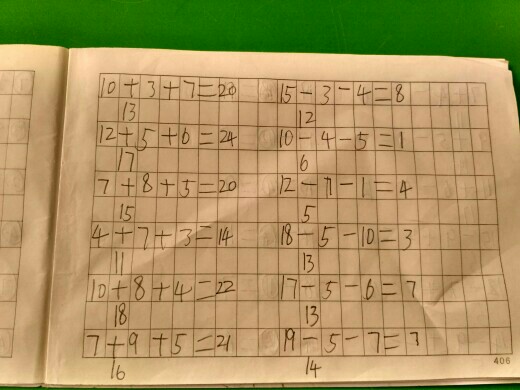 10+3+7=20 15-3-4=8
13 12
12+5+6=24 10-4-5=1
17 6
7+8+5=20 12-7-1=4
15 5
4+7+3=14 18-5-10=3
11 13
10+8+4=22 17-5-6=7
18 13
7+9+5=21 19-5-7=7
16 14
406